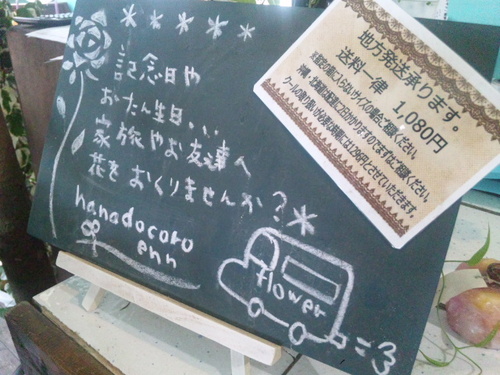 記念日や
おたん生日、、、
家族やお友達へ
花をおくりませんか?
hanadocoro
enn
flower
地方発送承ります。
送料一律 1,080円